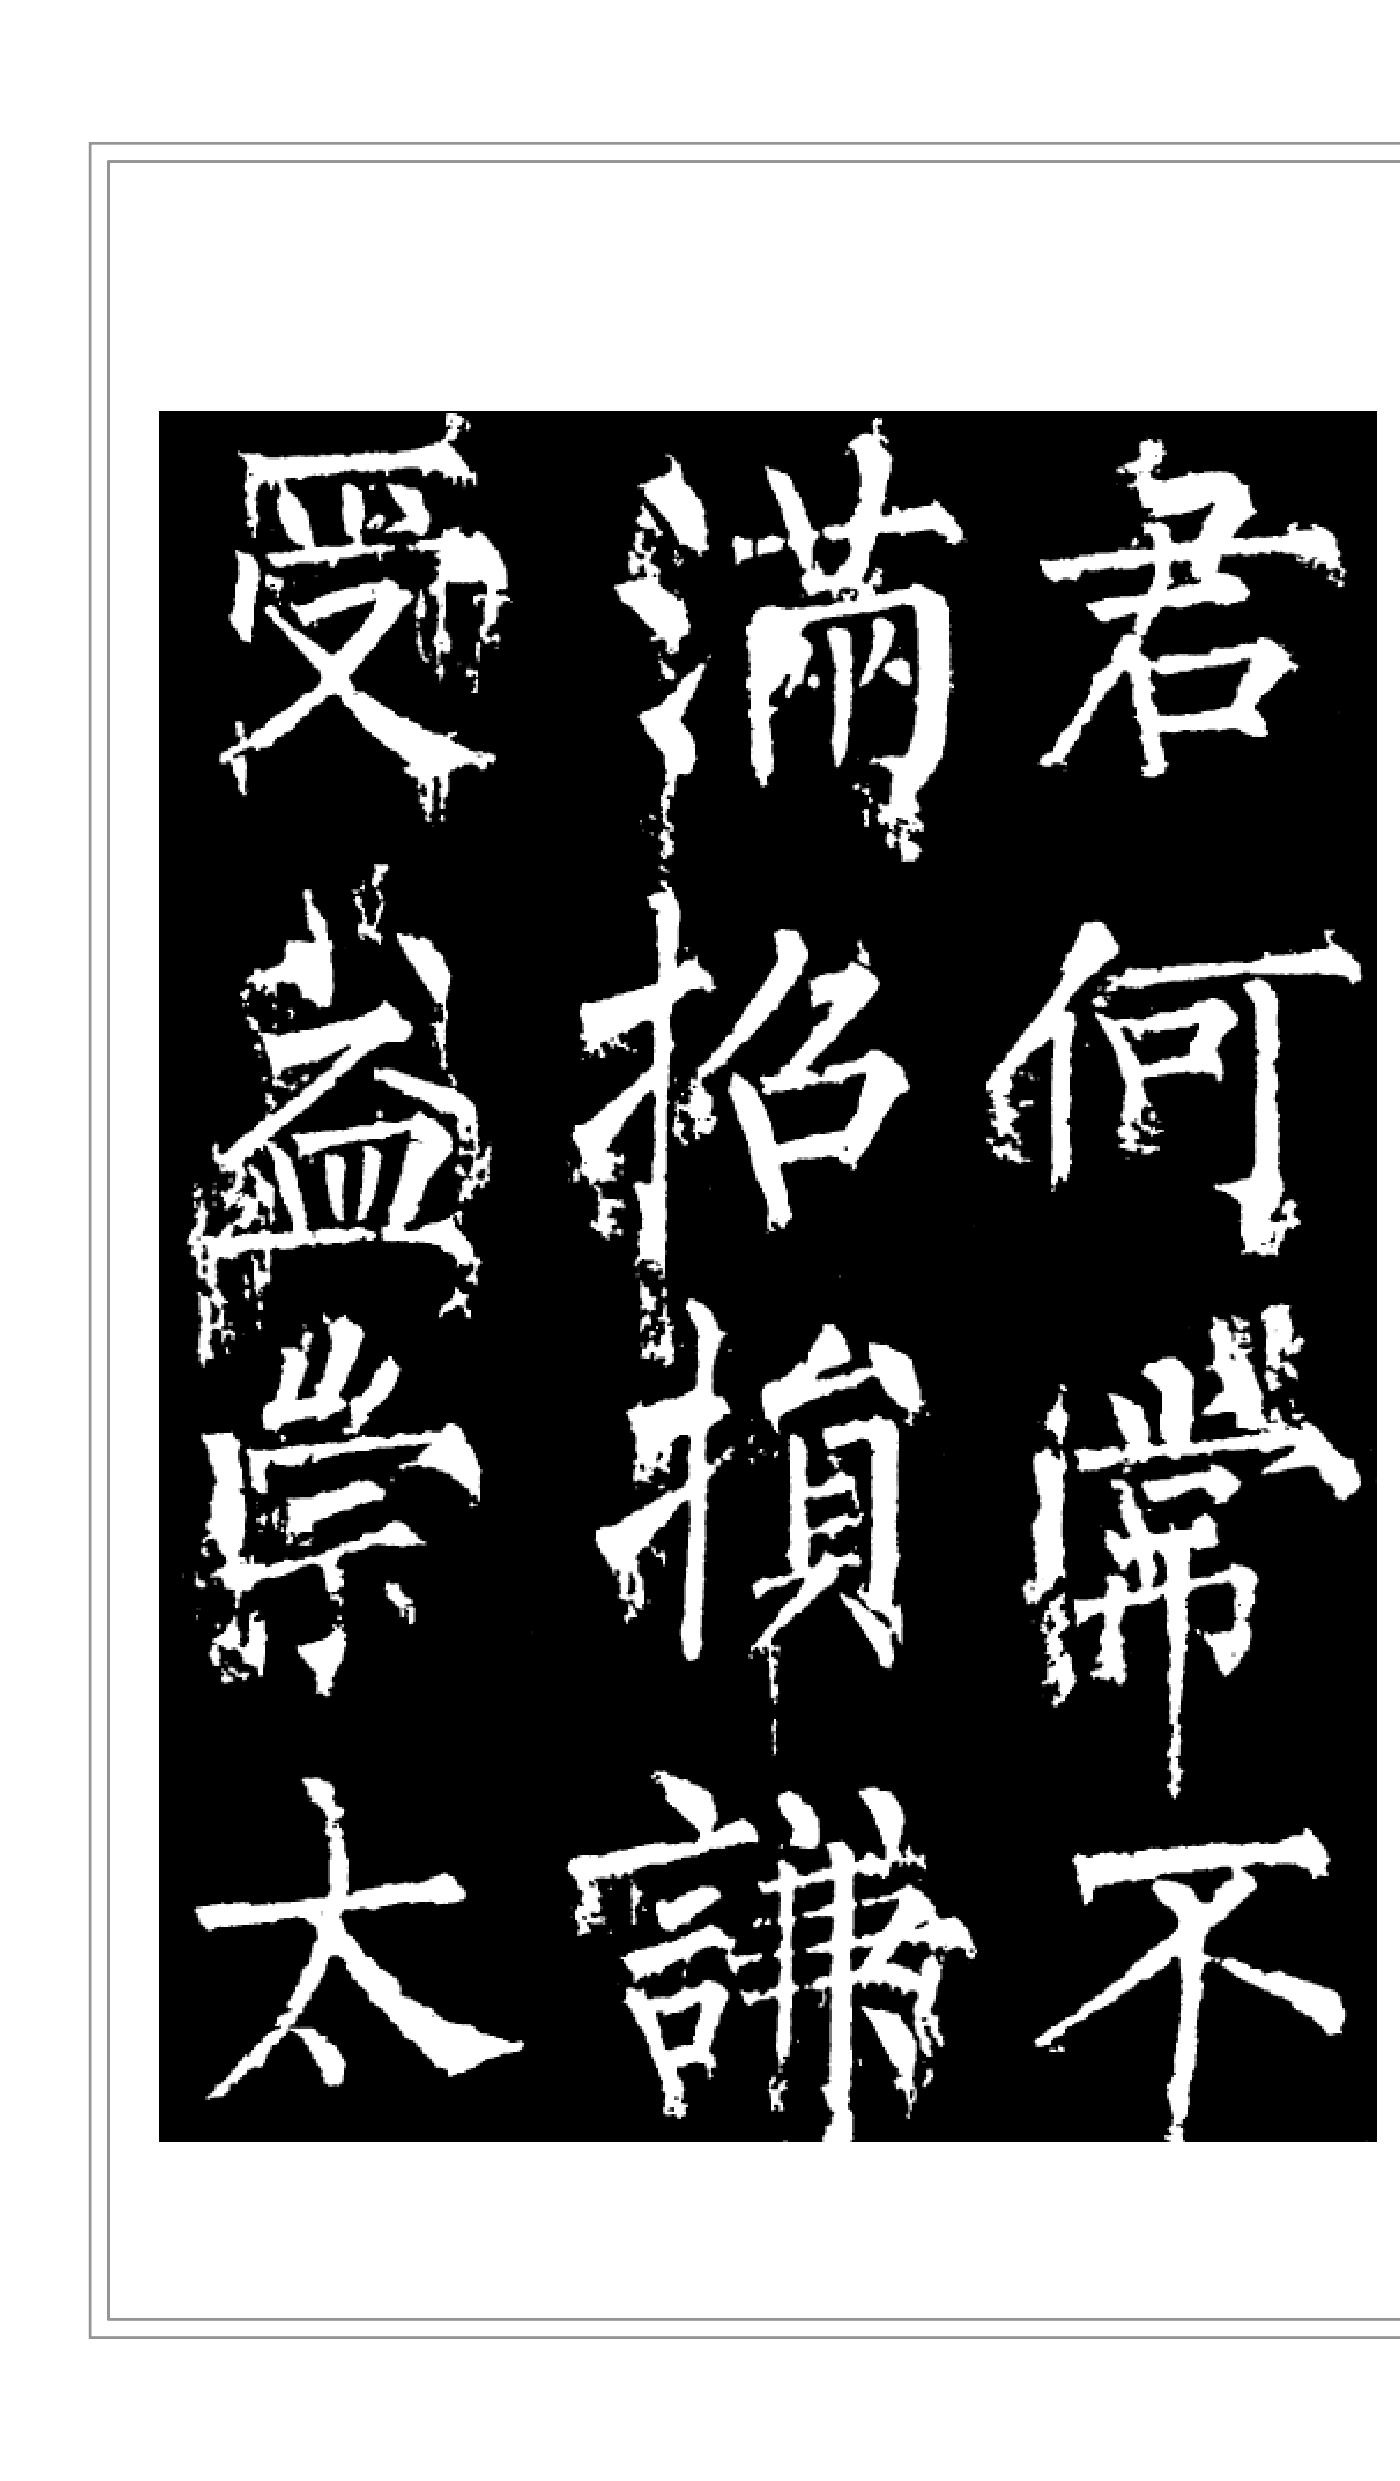 君何常不
滿招損謙
受益崇太